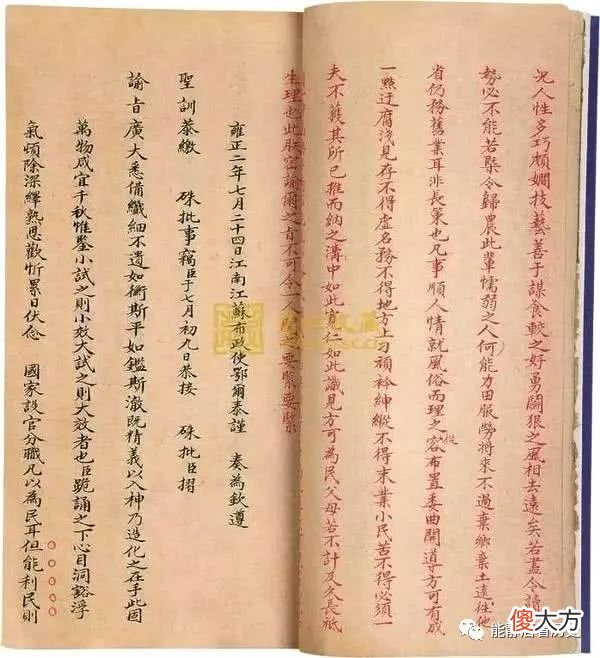 况人性多巧頗嫻技藝善于謀食較之好勇鬪狠之風相去遠矣若盡令讀
勢必不能若槩令歸農此輩懦弱之人何能力田服勞將來不過棄鄉棄土遠徃他
省仍務舊業耳非長策也凡事順人情就風俗而理之從容布置委曲開導方可有成
一點迂腐淺見存不得虛名務不得地方上刁頑衿紳縱不得末業小民苦不得必須一
夫不獲其所已推而納之溝中如此寬仁如此識見方可為民父母若不計及久長祇
生理也此朕密諭爾之旨不可令一人之要緊要緊
雍正二年七月二十四日江南江蘇布政使鄂爾泰謹 奏為欽遵
聖訓恭繳 硃批事竊臣于七月初九日恭接 硃批臣摺
諭旨廣大悉備纖細不遺如衡斯平如鑑斯澈既精義以入神乃造化之在手此固
萬物咸宜千秋惟鑒小試之則小效大試之則大效者也臣跪誦之下心目洞豁浮
氣頓除深繹熟思歡忻累日伏念 國家設官分職凡以為民耳但能利民則
傻大方